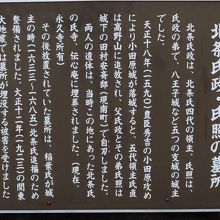 北条氏政・氏照の墓所
北条氏政は、北条氏四代の領主、氏照は、
氏政の弟で、八王子城など五つの支城の城主
でした。
天正十八年(一五九〇)豊臣秀吉の小田原攻め
により小田原城が落城すると、五代領主氏直
は高野山に追放され、父氏政とその弟氏照は
城下の田村安斎邸(現南町)で自刃しました。
両人の遺体は、当時この地にあった北条氏
の氏寺、伝心庵に埋葬されました。(現在、
永久寺所有)
その後放置されていた墓所は、稲葉氏が城
主の時(一六三三〜一六八五)北条氏追福のため
整備されました。大正十二年(一九二三)の関東
大地震では墓所が埋没する被害を受けました